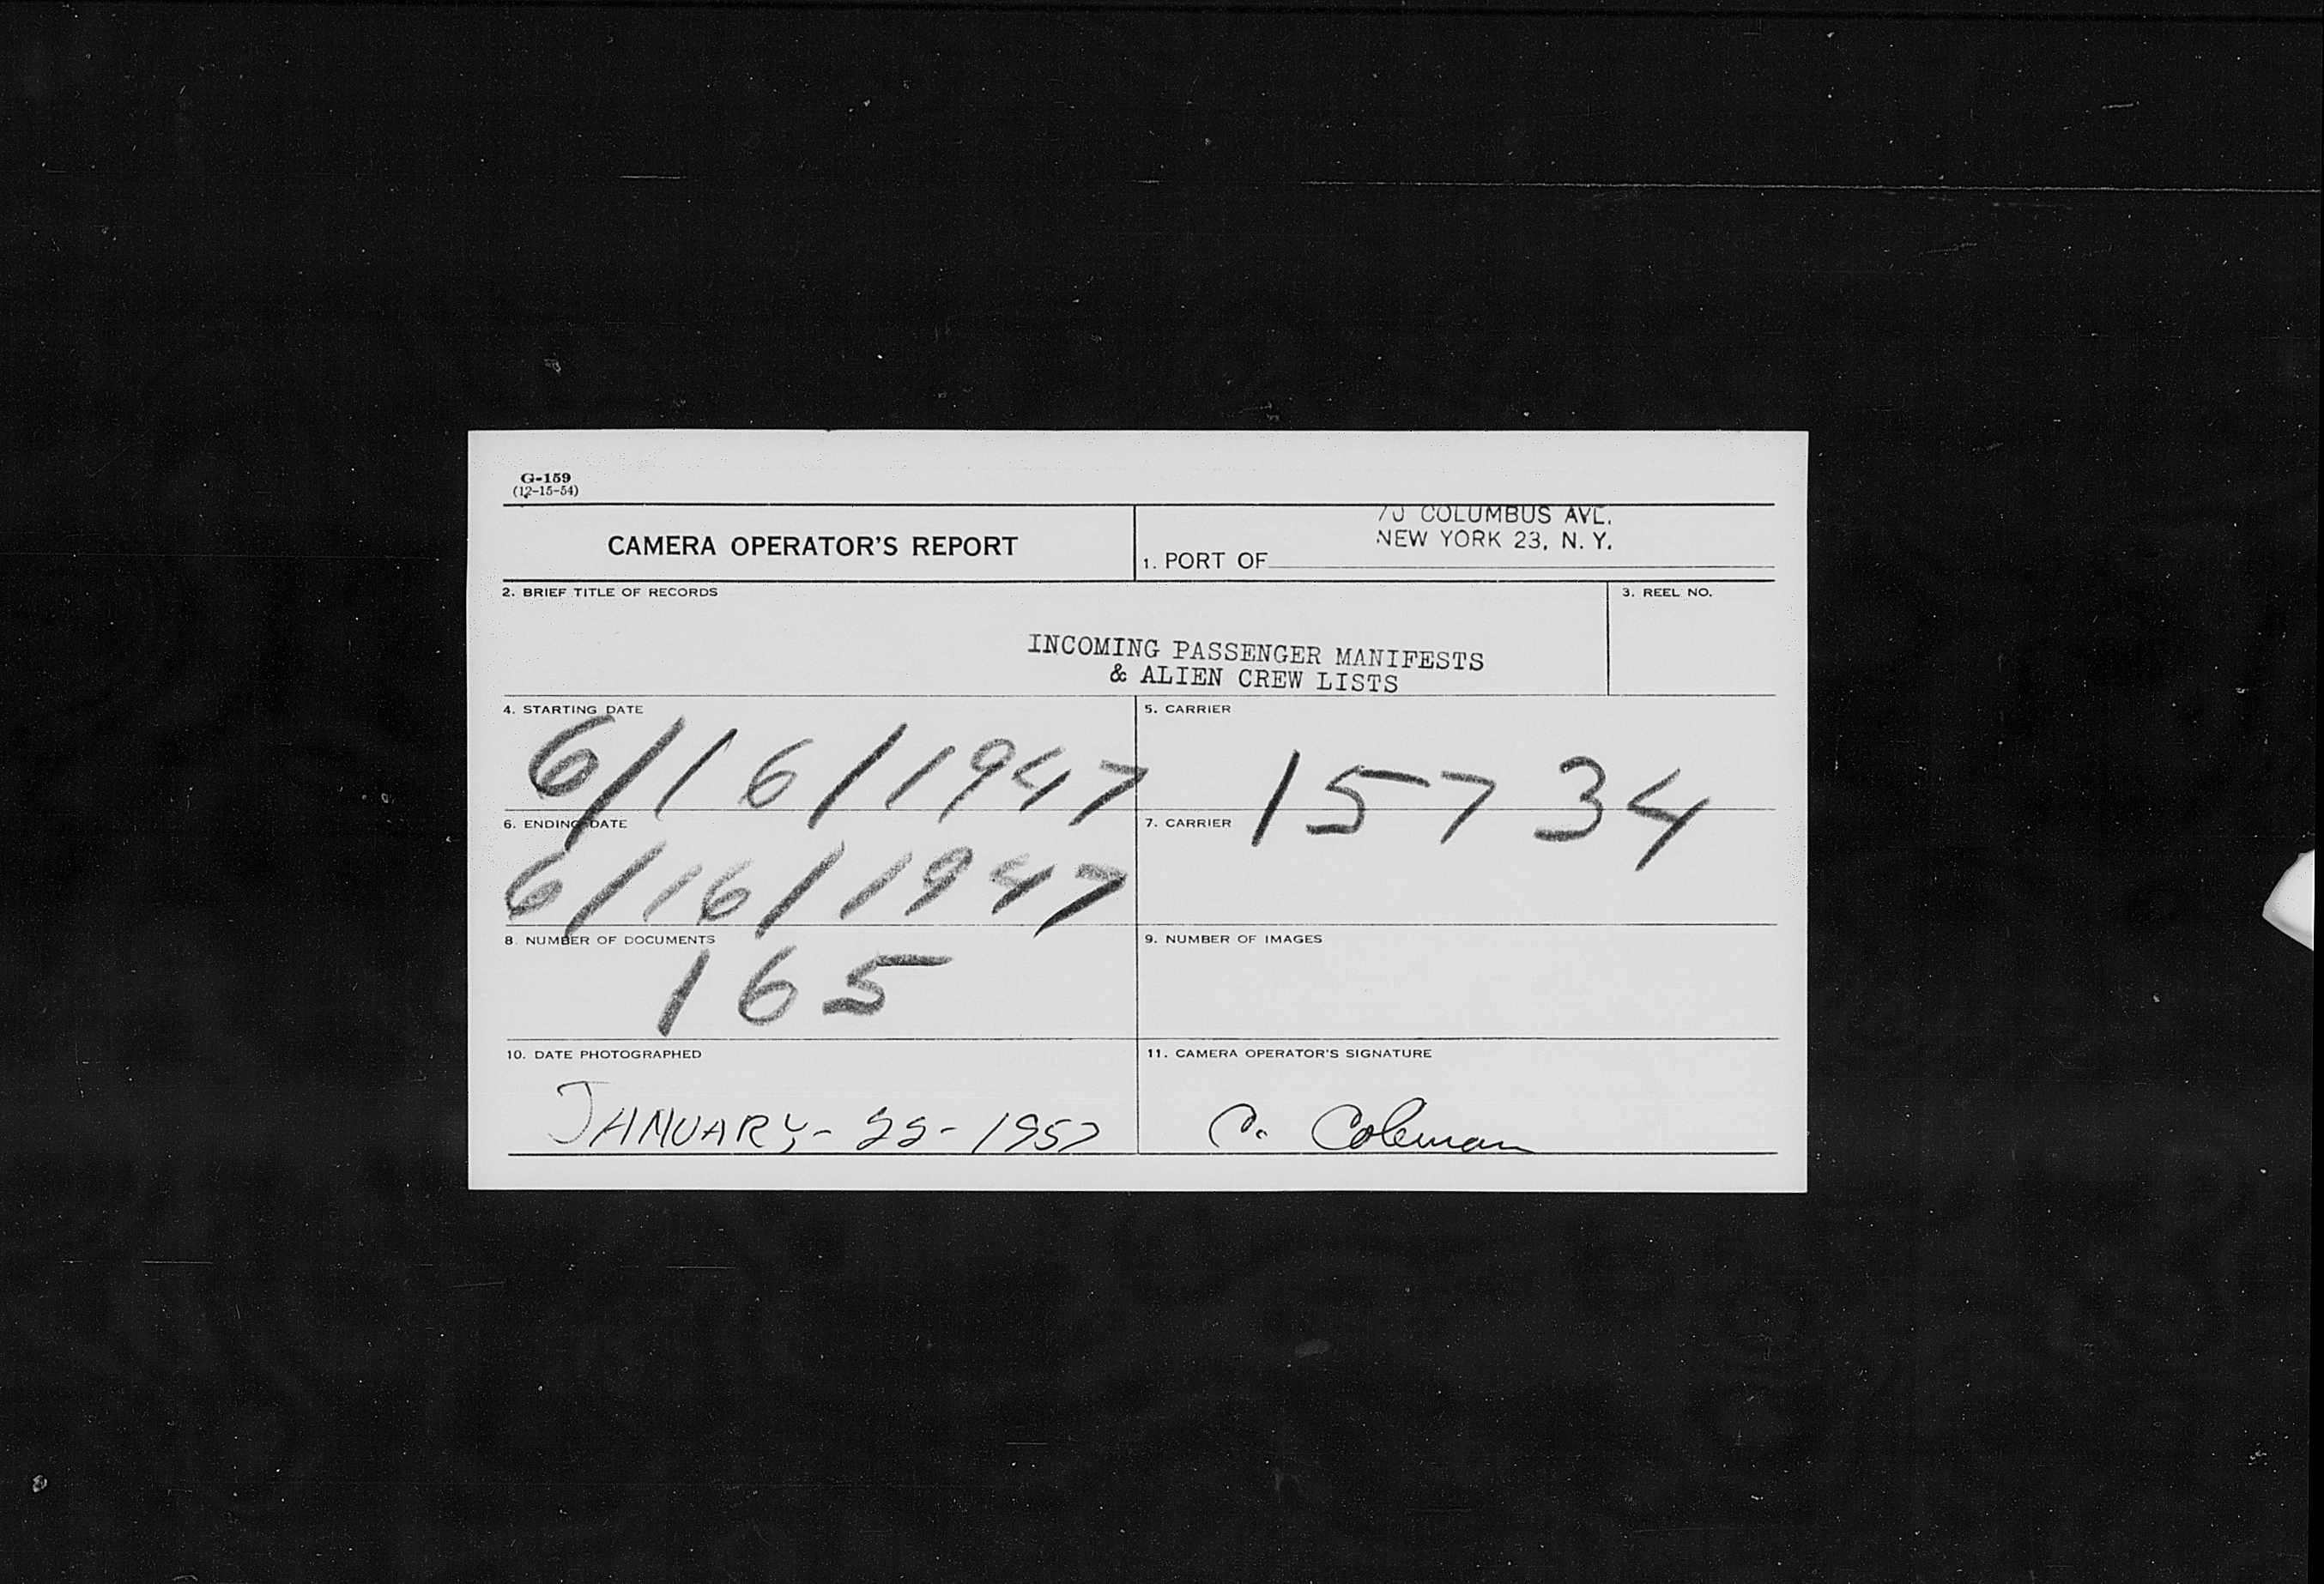 G-159
(12-15-54)
CAMERA OPERATOR'S REPORT
70 COLUMBUS AVE.
NEW YORK 23, N. Y.
1. PORT OF
2. BRIEF TITLE OF RECORDS
3. REEL NO.
INCOMING PASSENGER MANIFESTS
& ALIEN CREW LISTS
4. STARTING DATE
6/16/1947
5. CARRIER
15734
6. ENDING DATE
6/16/1947
7. CARRIER
8. NUMBER OF DOCUMENTS
165
9. NUMBER OF IMAGES
10. DATE PHOTOGRAPHED
JANUARY-22-1957
11. CAMERA OPERATOR'S SIGNATURE
C. Coleman